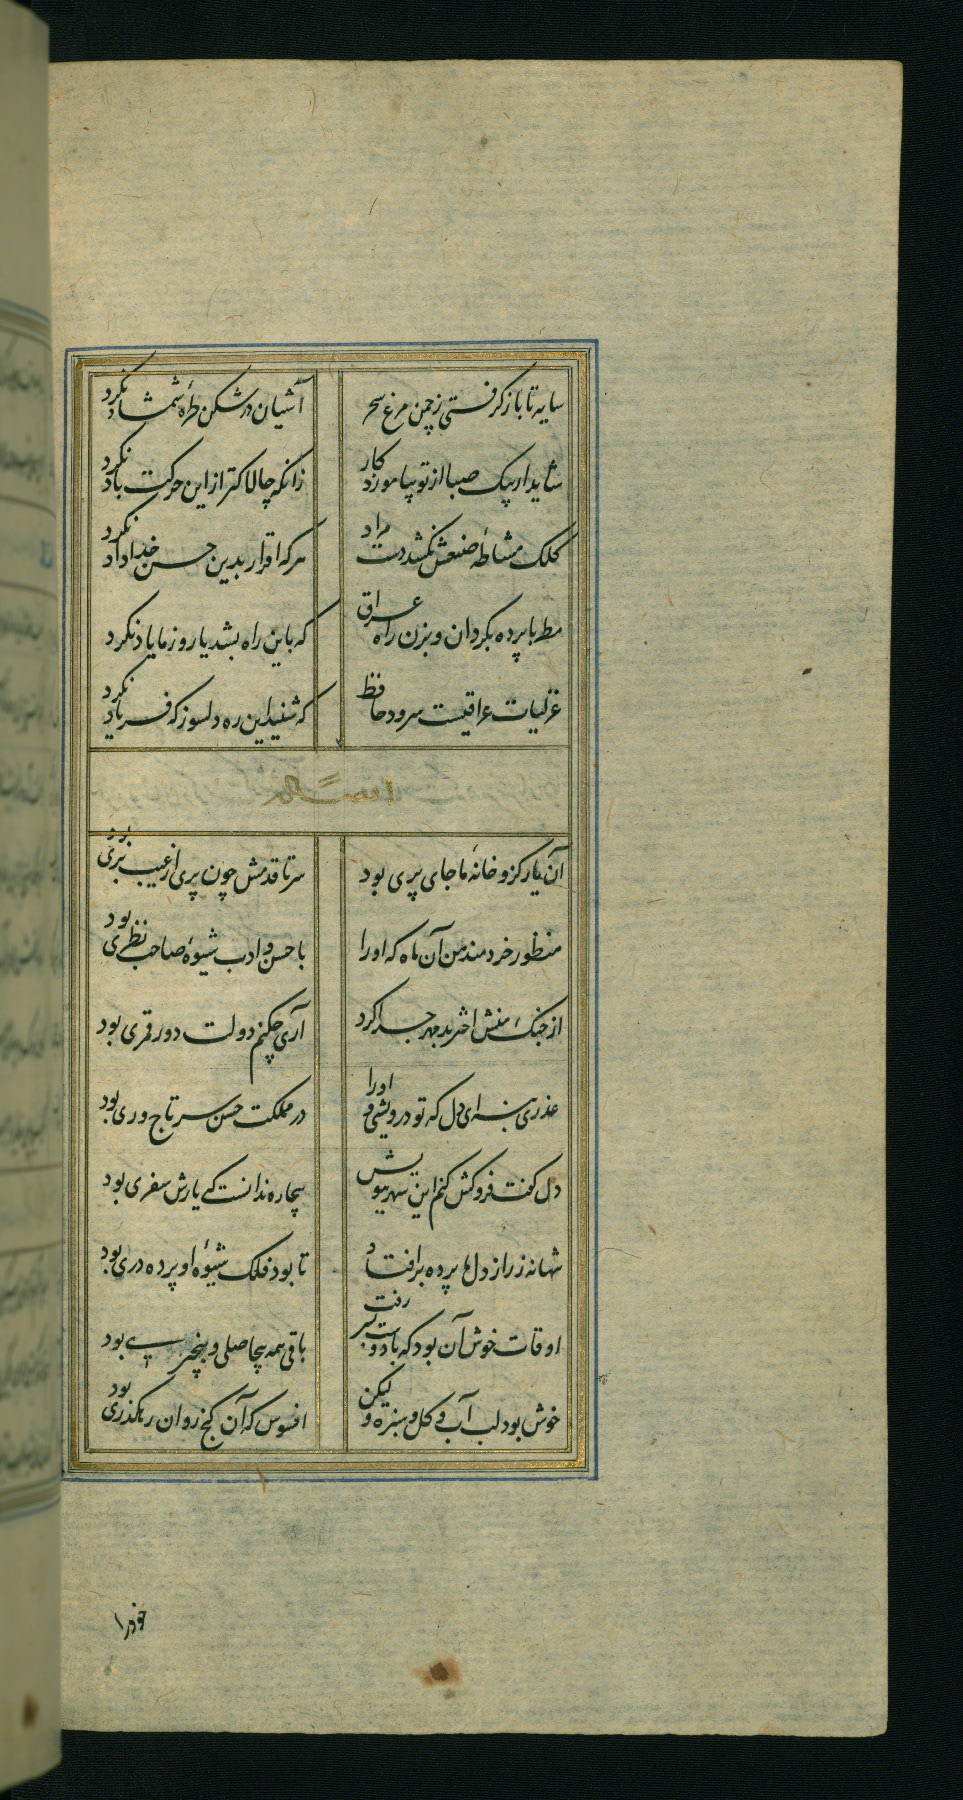 سایه تا باز گرفتی ز چمن مرغ سحر آشیان در شکن طرهٔ شمشاد نکرد
شاید ار پیک صبا از تو بیاموزد کار زانکه چالاکتر از این حرکت باد نکرد
کلک مشاطهٔ صنعش نکشد ت مراد هر که اقرار بدین حسن خداداد نکرد
مطربا پرده بگردان و بزن راه عراق که باین راه بشد یار و ز ما یاد نکرد
غزلیات عراقیست سرود حافظ که شنید این ره دلسوز که فریاد نکرد
ایضاً له
آن یار کزو خانهٔ ما جای پری بود سر تا قدمش چون پری از عیب بری بود
منظور خردمند من آن ماه که او را با حسن و ادب شیوهٔ صاحب نظری بود
از چنگ منش اختر بد مهر جدا کرد آری چکنم دولت دور قمری بود
عذری بنه ای دل که تو درویشی و او را در مملکت حسن سر تاج وری بود
دل گفت فروکش کنم این شهر ببویش بیچاره ندانست که یارش سفری بود
تنها نه ز راز دل ما پرده برافتاد تا بود فلک شیوهٔ او پرده دری بود
اوقات خوش آن بود که با دوست بسر رفت باقی همه بیحاصلی و بیخبری بود
خوش بود لب آب و گل و سبزه و لیکن افسوس که آن گنج روان رهگذری بود
خود را